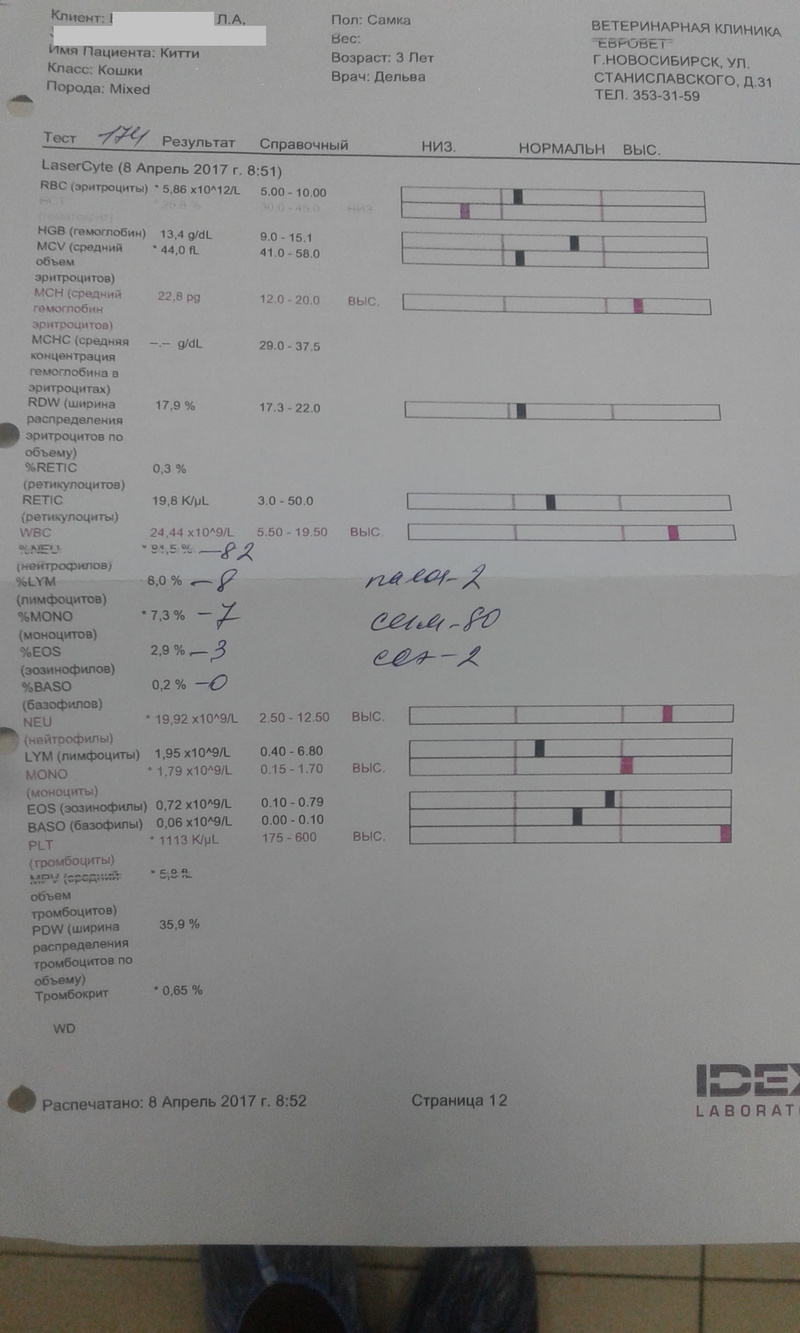 Клиент: Л.А.
Имя Пациента: Китти
Класс: Кошки
Порода: Mixed
Пол: Самка
Вес:
Возраст: 3 Лет
Врач: Дельва
ВЕТЕРИНАРНАЯ КЛИНИКА
ЕВРОВЕТ
Г.НОВОСИБИРСК, УЛ.
СТАНИСЛАВСКОГО, Д.31
ТЕЛ. 353-31-59
Тест 174 Результат Справочный НИЗ. НОРМАЛЬН ВЫС.
LaserCyte (8 Апрель 2017 г. 8:51)
RBC (эритроциты) * 5,86 x10^12/L 5.00 - 10.00
30.0 - 45.0 НИЗ
HGB (гемоглобин) 13,4 g/dL 9.0 - 15.1
MCV (средний * 44,0 fL 41.0 - 58.0
объем
эритроцитов)
MCH (средний 22,8 pg 12.0 - 20.0 ВЫС.
гемоглобин
эритроцитов)
MCHC (средняя --.-- g/dL 29.0 - 37.5
концентрация
гемоглобина в
эритроцитах)
RDW (ширина 17,9 % 17.3 - 22.0
распределения
эритроцитов по
объему)
%RETIC 0,3 %
(ретикулоцитов)
RETIC 19,8 K/µL 3.0 - 50.0
(ретикулоциты)
WBC 24,44 x10^9/L 5.50 - 19.50 ВЫС.
%NEU * 81,5 % – 82
(нейтрофилов)
%LYM 8,0 % – 8 палоч - 2
(лимфоцитов)
%MONO * 7,3 % – 7 сегм - 80
(моноцитов)
%EOS 2,9 % – 3
(эозинофилов)
%BASO 0,2 % – 0
(базофилов)
NEU * 19,92 x10^9/L 2.50 - 12.50 ВЫС.
(нейтрофилы)
LYM (лимфоциты) 1,95 x10^9/L 0.40 - 6.80
MONO * 1,79 x10^9/L 0.15 - 1.70 ВЫС.
(моноциты)
EOS (эозинофилы) 0,72 x10^9/L 0.10 - 0.79
BASO (базофилы) 0,06 x10^9/L 0.00 - 0.10
PLT * 1113 K/µL 175 - 600 ВЫС.
(тромбоциты)
MPV (средний * 5,8 fL
объем
тромбоцитов)
PDW (ширина 35,9 %
распределения
тромбоцитов по
объему)
Тромбокрит * 0,65 %
WD
Распечатано: 8 Апрель 2017 г. 8:52 Страница 12
IDEX
LABORAT